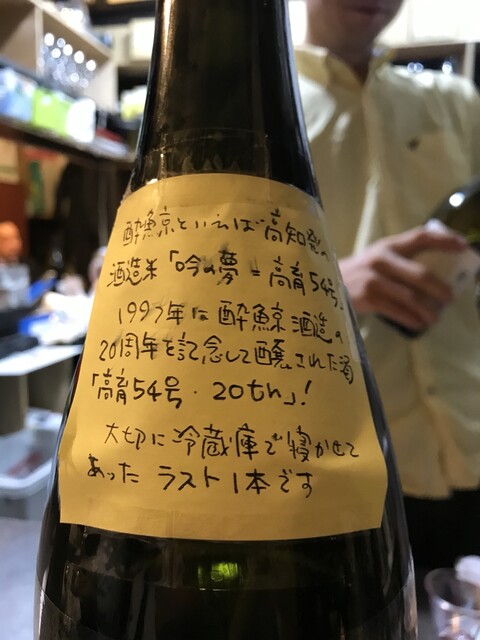 酔鯨といえば高知県の
酒造米「吟の夢=高育54号」
1997年に酔鯨酒造の
20周年を記念して醸された酒
「高育54号・20th」!
大切に冷蔵庫で寝かせて
あった ラスト1本です